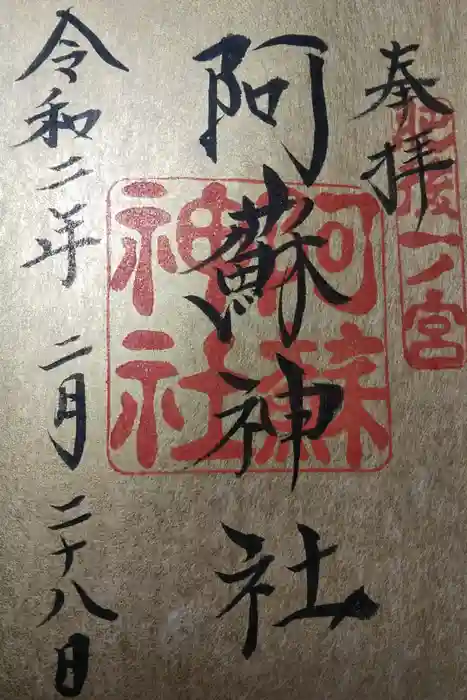 奉拝
肥後一ノ宮
阿蘇神社
阿蘇
神社
令和二年 二月 二十八日